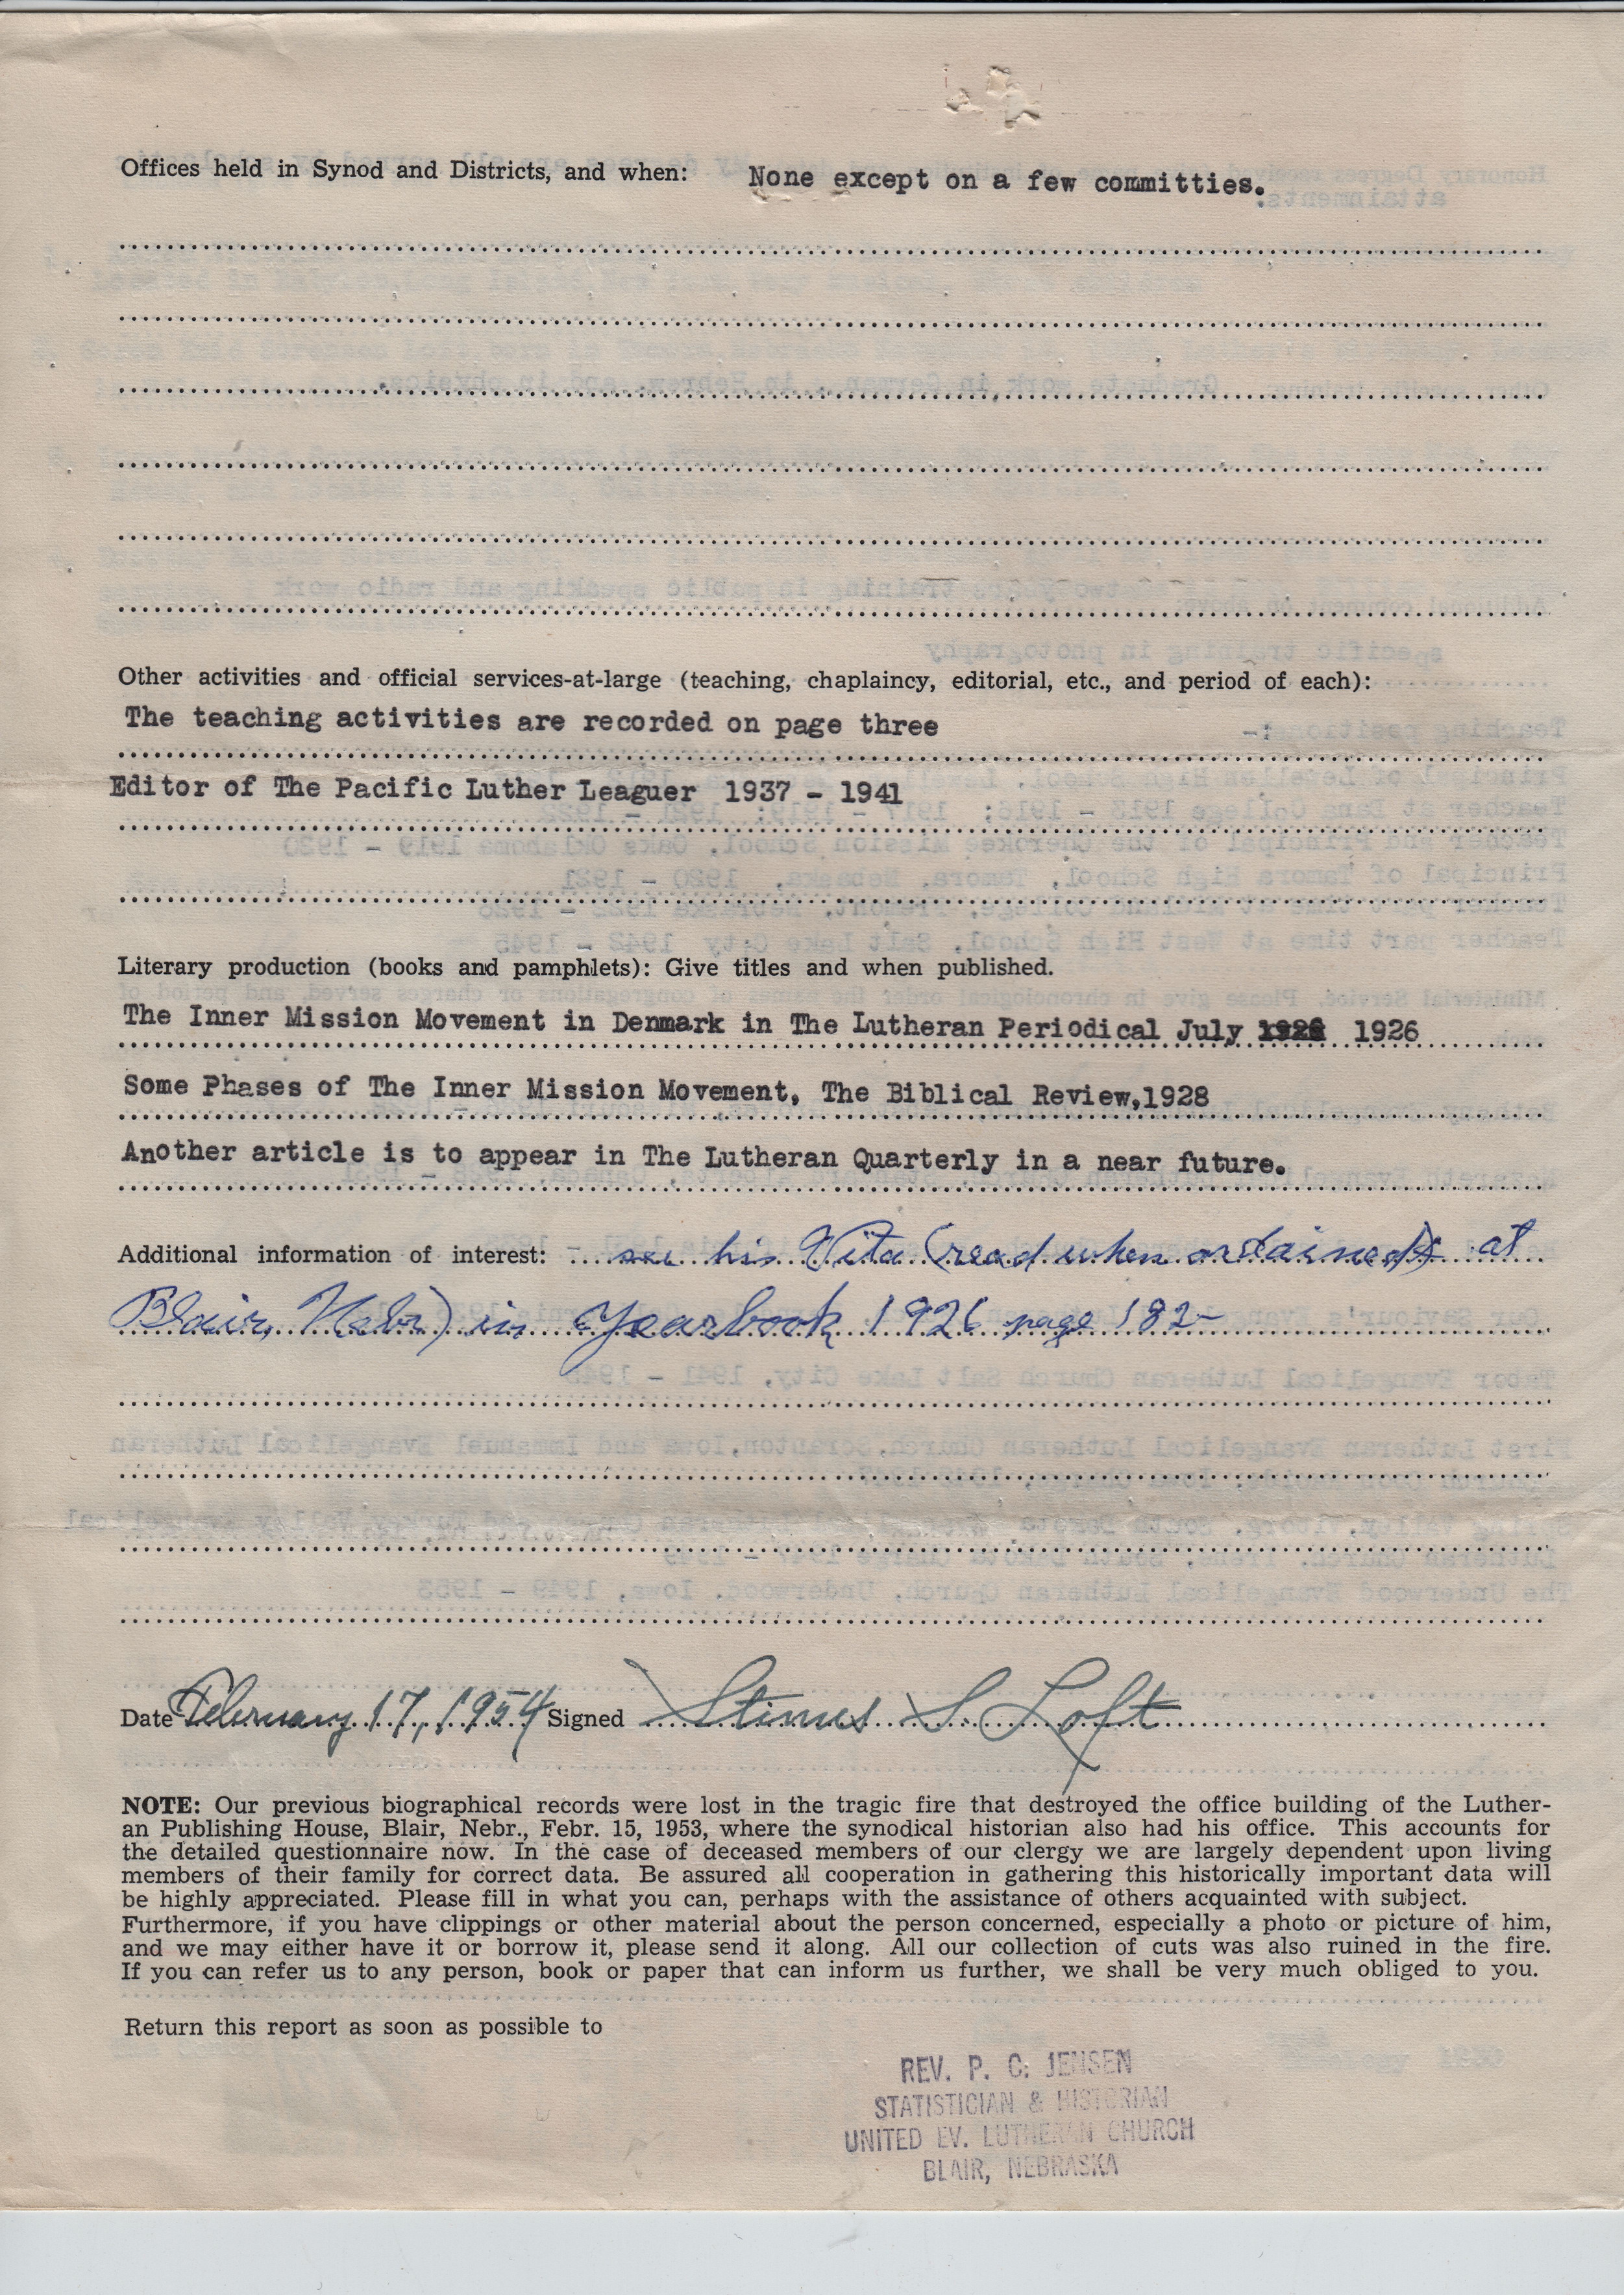 Offices held in Synod and Districts, and when: None except on a few committies.
Other activities and official services-at-large (teaching, chaplaincy, editorial, etc., and period of each):
The teaching activities are recorded on page three
Editor of The Pacific Luther Leaguer 1937 - 1941
Literary production (books and pamphlets): Give titles and when published.
The Inner Mission Movement in Denmark in The Lutheran Periodical July 1926
Some Phases of The Inner Mission Movement, The Biblical Review,1928
Another article is to appear in The Lutheran Quarterly in a near future.
Additional information of interest: see his Vita (read when ordained) at
Blair, Nebr) in Yearbook 1926 page 182-
Date February 17, 1954 Signed Stinus S Loft
NOTE: Our previous biographical records were lost in the tragic fire that destroyed the office building of the Luther-
an Publishing House, Blair, Nebr., Febr. 15, 1953, where the synodical historian also had his office. This accounts for
the detailed questionnaire now. In the case of deceased members of our clergy we are largely dependent upon living
members of their family for correct data. Be assured all cooperation in gathering this historically important data will
be highly appreciated. Please fill in what you can, perhaps with the assistance of others acquainted with subject.
Furthermore, if you have clippings or other material about the person concerned, especially a photo or picture of him,
and we may either have it or borrow it, please send it along. All our collection of cuts was also ruined in the fire.
If you can refer us to any person, book or paper that can inform us further, we shall be very much obliged to you.
Return this report as soon as possible to
REV. P. C. JENSEN
STATISTICIAN & HISTORIAN
UNITED EV. LUTHERAN CHURCH
BLAIR, NEBRASKA